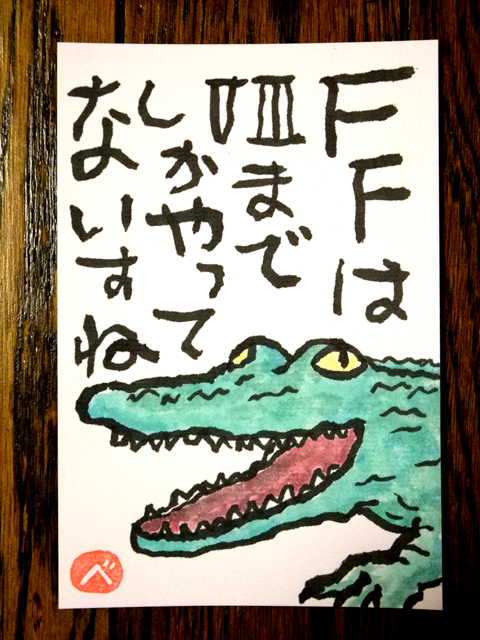 FFは
Ⅷまで
しかやって
ないすね
べ